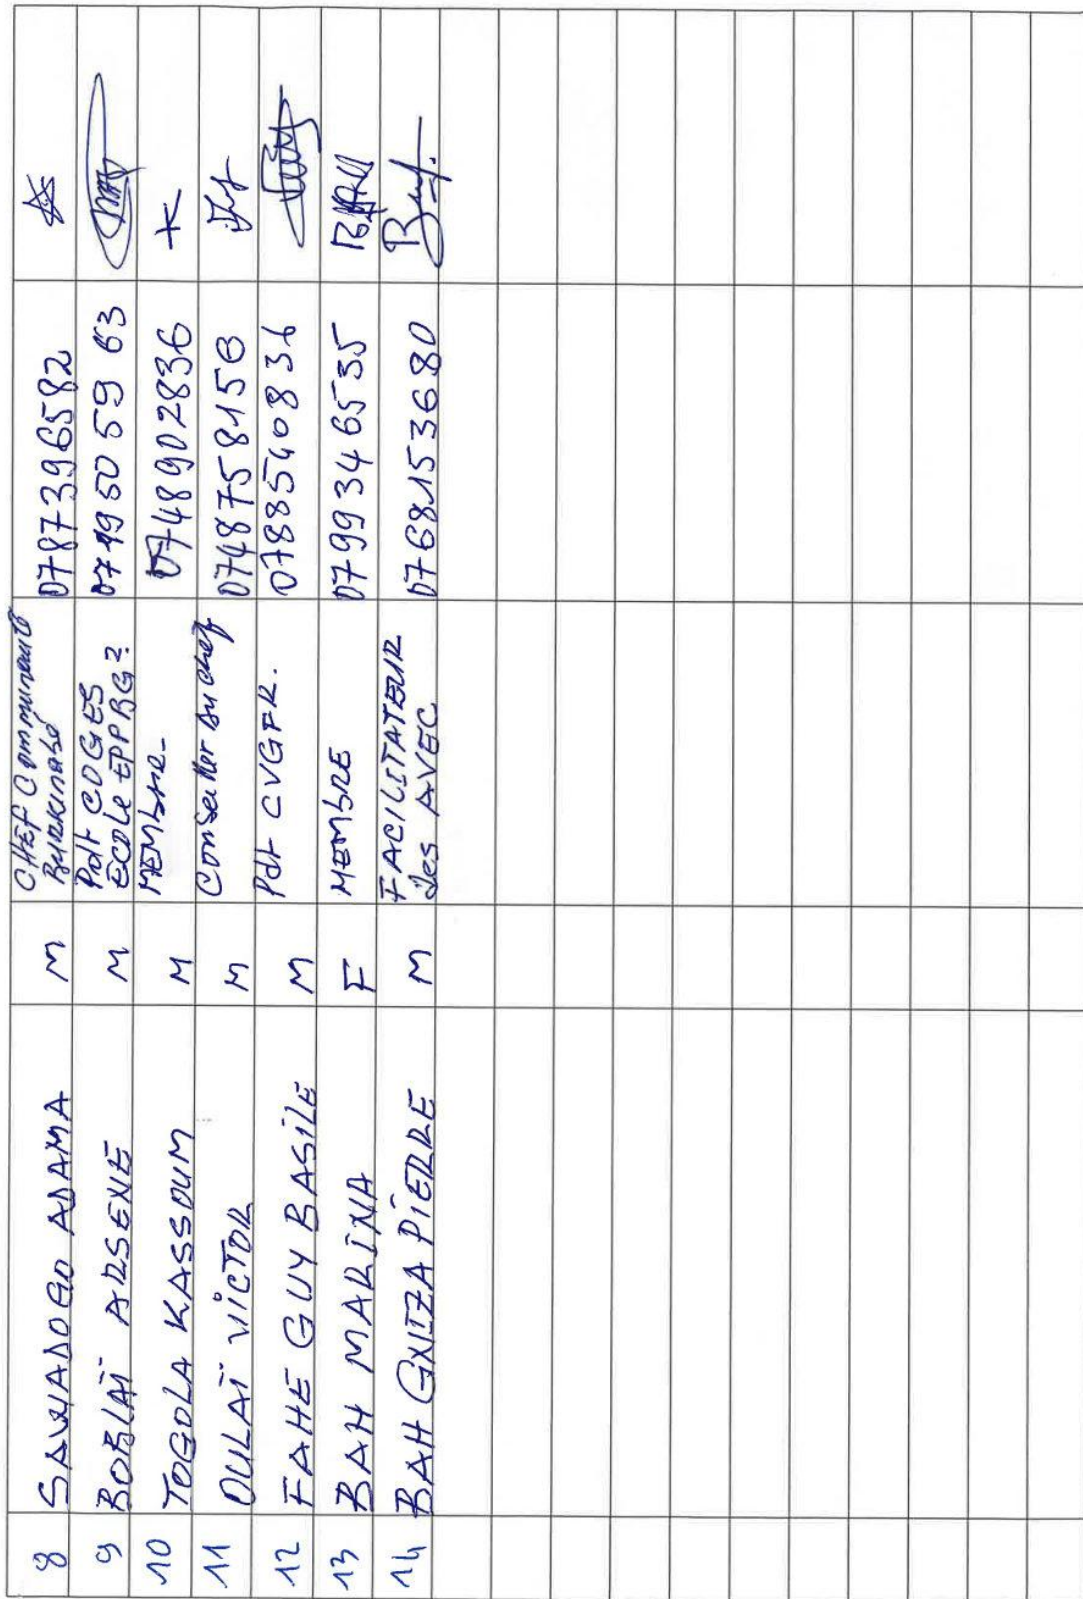 8 SAWADOGO ADAMA M CHEF Communauté Burkinabé 0787396582
9 BOBLAÏ ARSENE M Pdt COGES ECOLE EPPBG2 0719505963
10 TOGOLA KASSOUM M MEMBRE 0748902836
11 OULAÏ VICTOR M Conseiller du chef
12 FAHE GUY BASILE M Pdt CVGFR. 0788540836
13 BAH MARINA F MEMBRE 0799346535
14 BAH PIERRE M FACILITATEUR des AVEC 0768153680